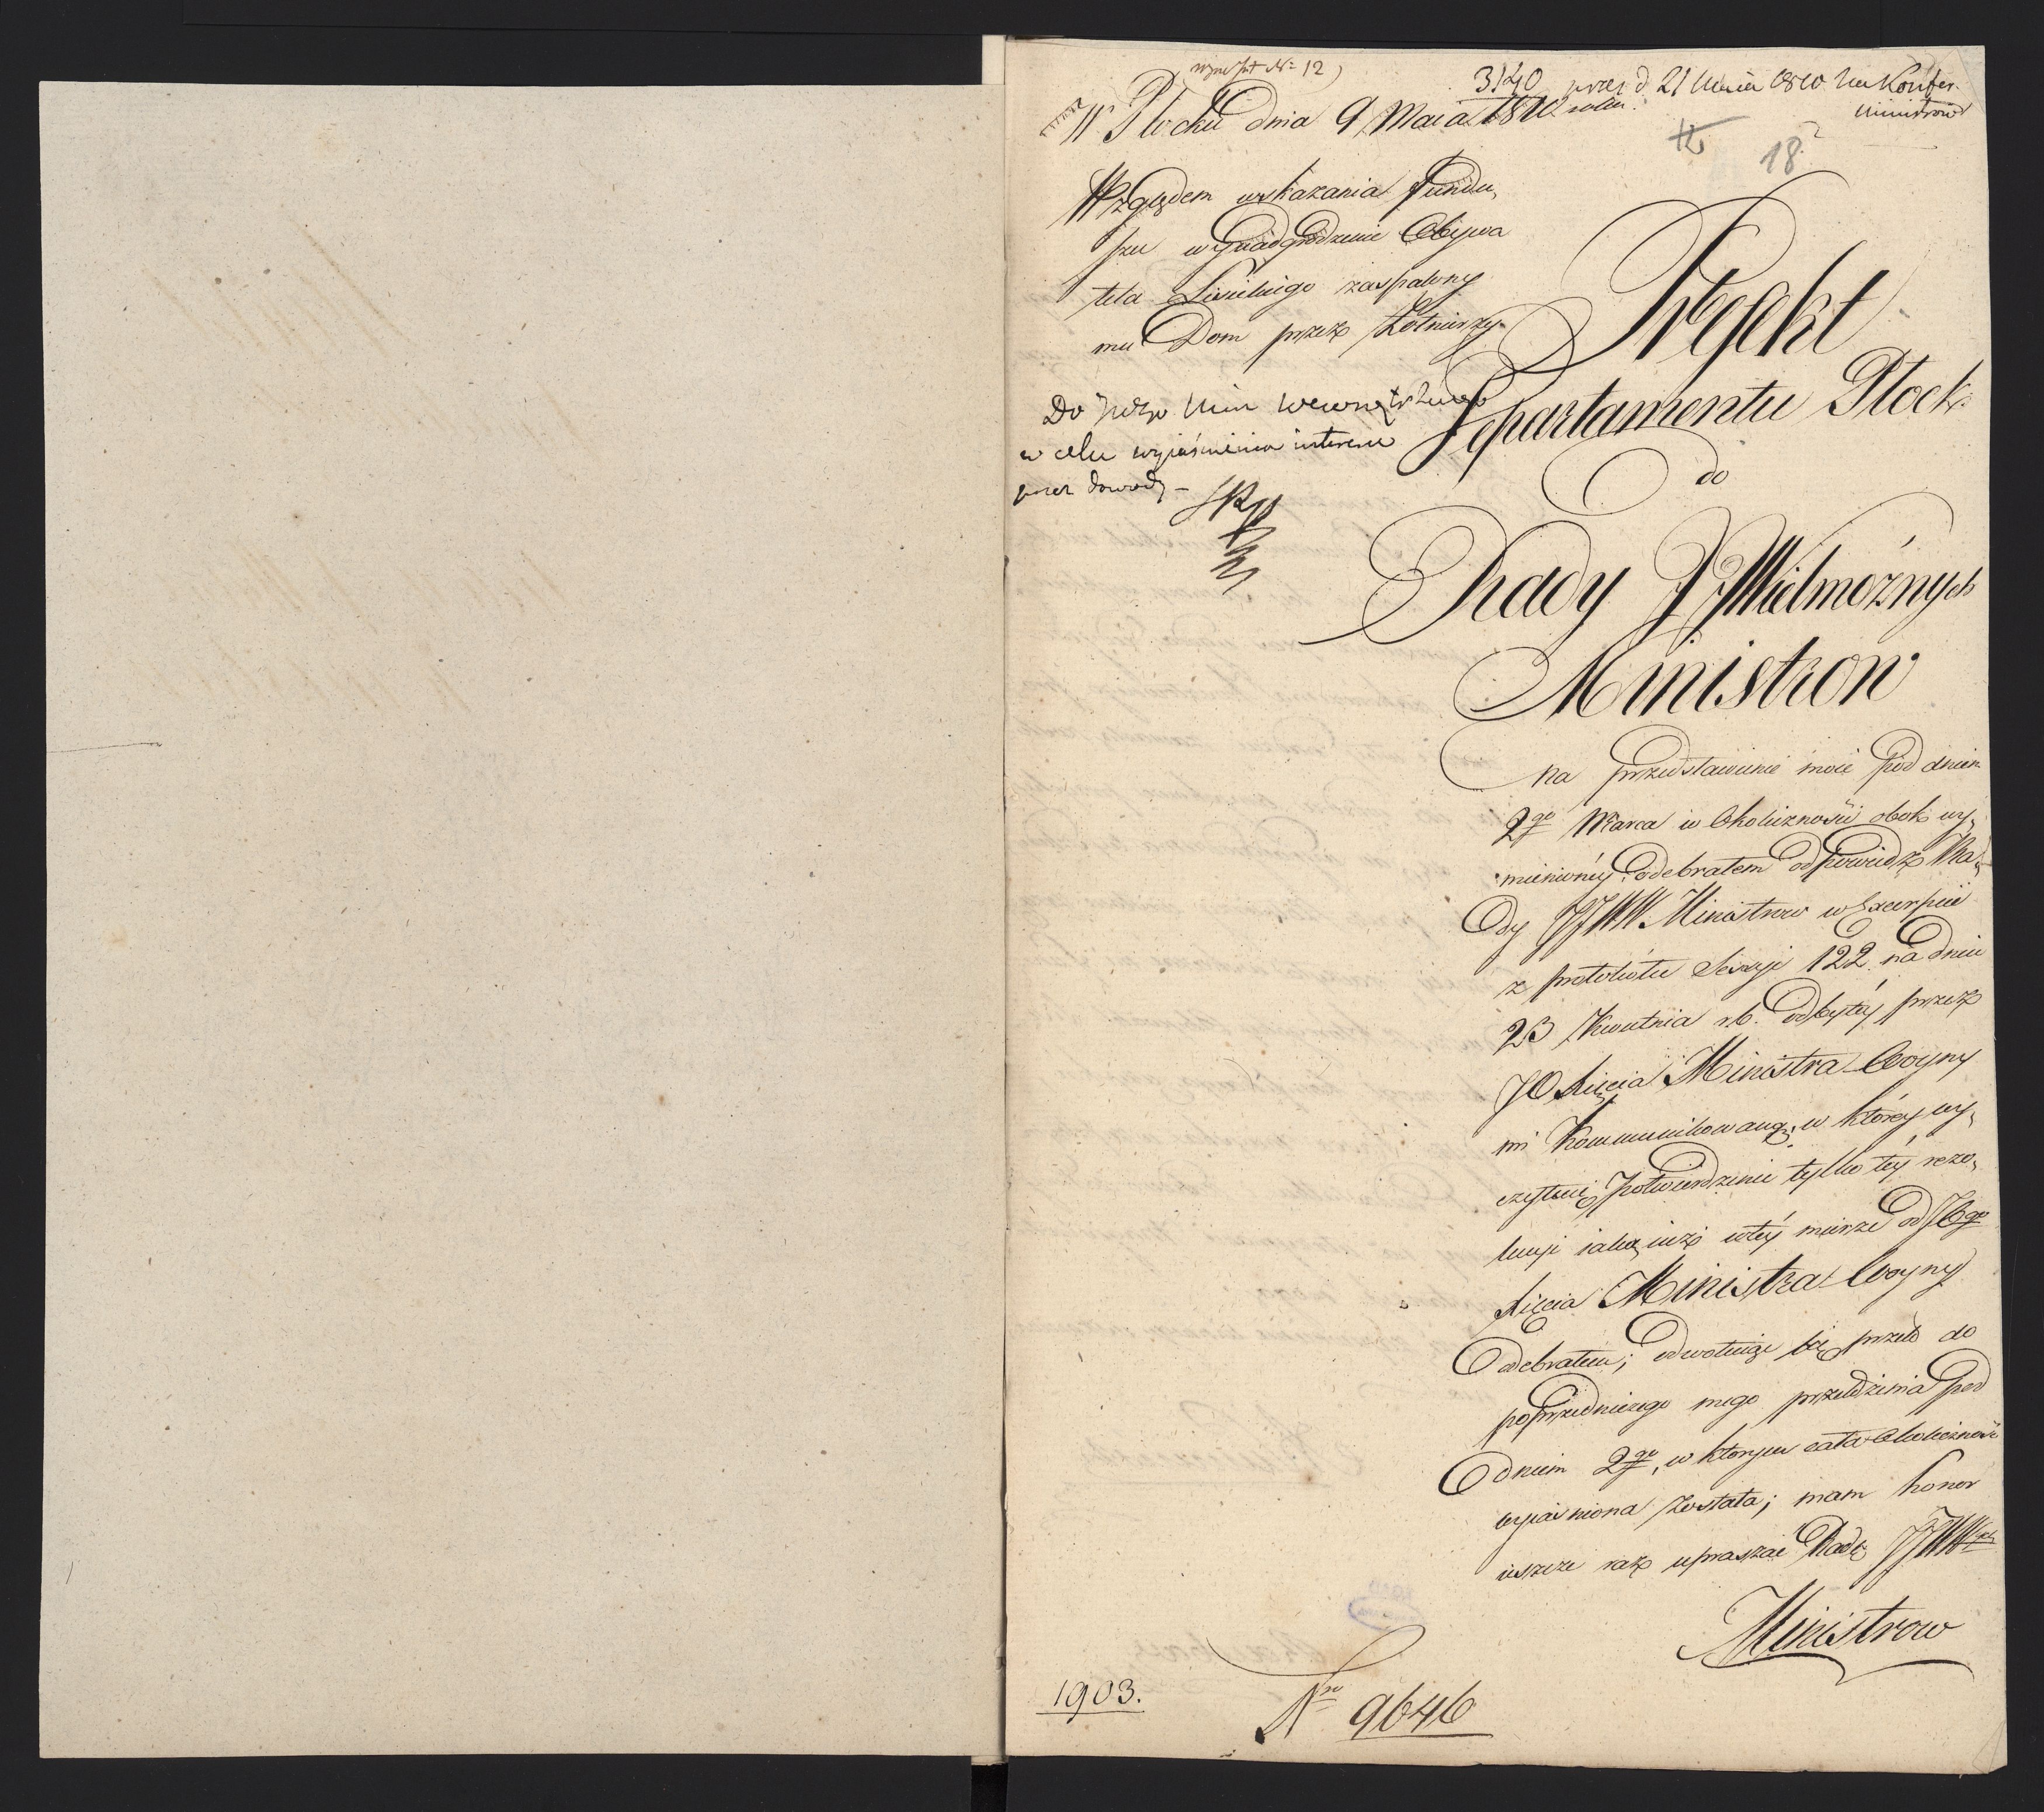 Nº 12
3140 prez d 21 Maia 1810 na Konfer.
Ministrow
W Płocku dnia 9 Maia 1810 roku.
18
Względem wskazania fundu,
szu wynadgrodzenie Obywa
tela zaspalony
mu Dom przez Żołnierzy
Do JWgo Min Wewnętrznego
w celu wyiaśnienia interesu
przez dowody –
Prefekt
Departamentu Płock.
do
Rady JJWielmożnych
Ministrow
na przedstawienie moie pod dniem
2go Marca w Okoliczności obok wy,
mienioney odebrałem odpowiedz Ra,
dy JJWW Ministrow w Excerpcie
z protokołu Sessyi 122 na dniu
23 Kwietnia r.b. odbytéy przez
JO Xięcia Ministra Woyny
mi kommunikowaną; w którey wy,
czytuię potwierdzenie tylko téy rezo,
lucyi iaką iuż w téy mierze od JOgo
Xięcia Ministra Woyny
Odebrałem; odwołuiąc się przeto do
poprzedniczego mego pod
dniem 2go, w ktorym cała Okoliczność
wyiaśniona została; mam honor
ieszcze raz upraszać Radę JJWWych
Ministrow
1903.
Nro 9646